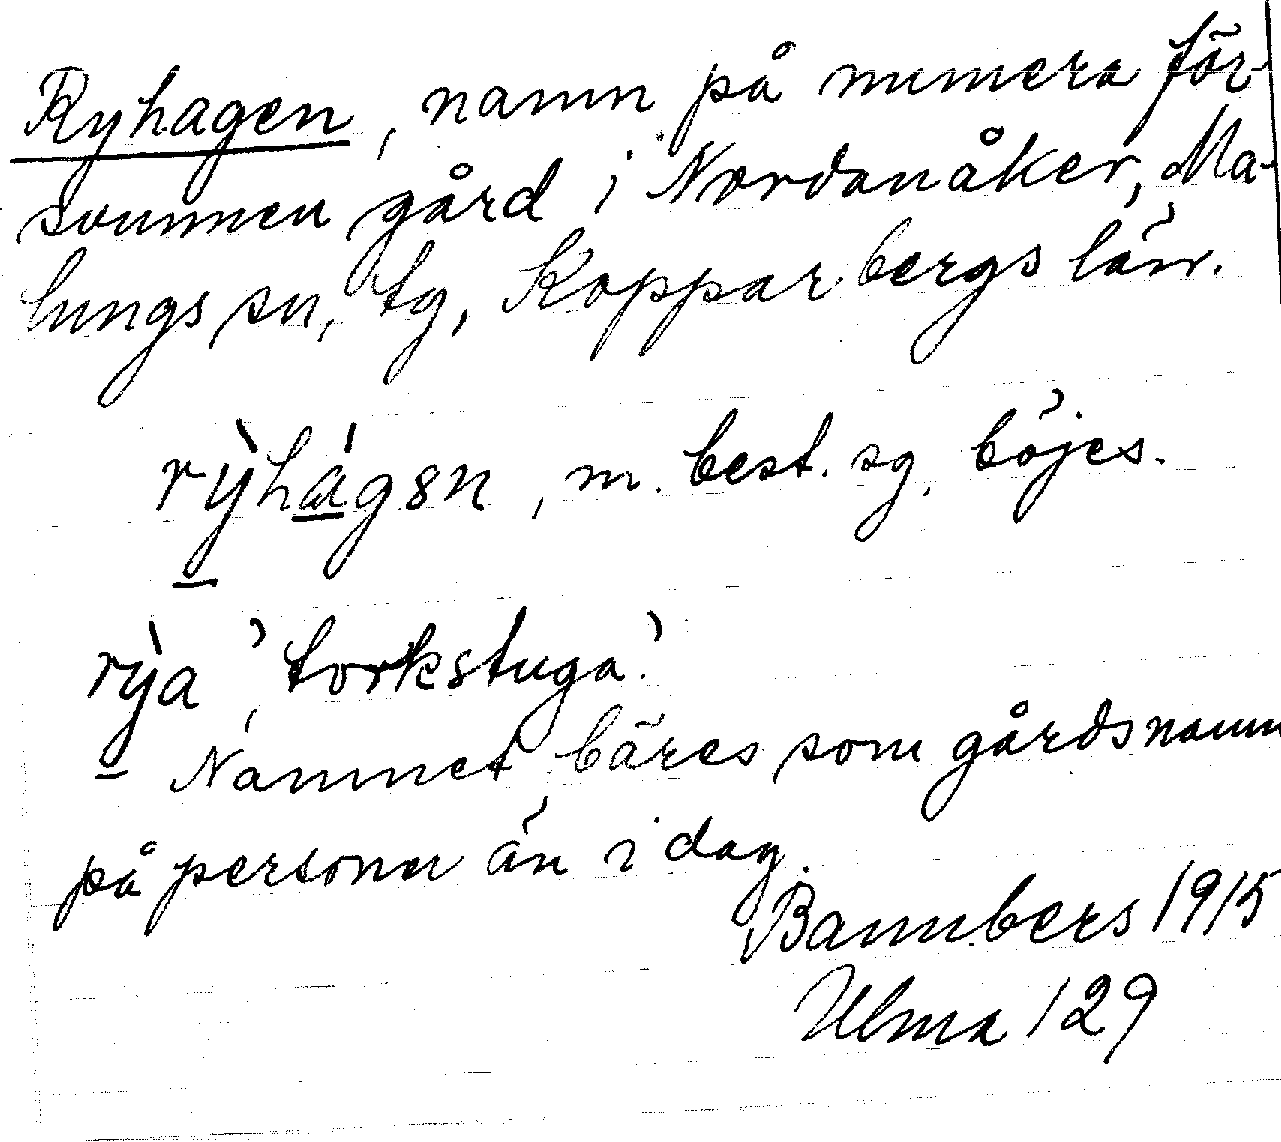 Ryhagen, namn på numera för-
svunnen gård i Nordanåker, Ma-
lungs sn, tg, Kopparbergs län.
rỳhágən, m. best. sg. böjes.
rỳa, 'torkstuga'.
Namnet bäres som gårdsnamn
på personer än i dag.
Bannbers 1915
Ulma 129